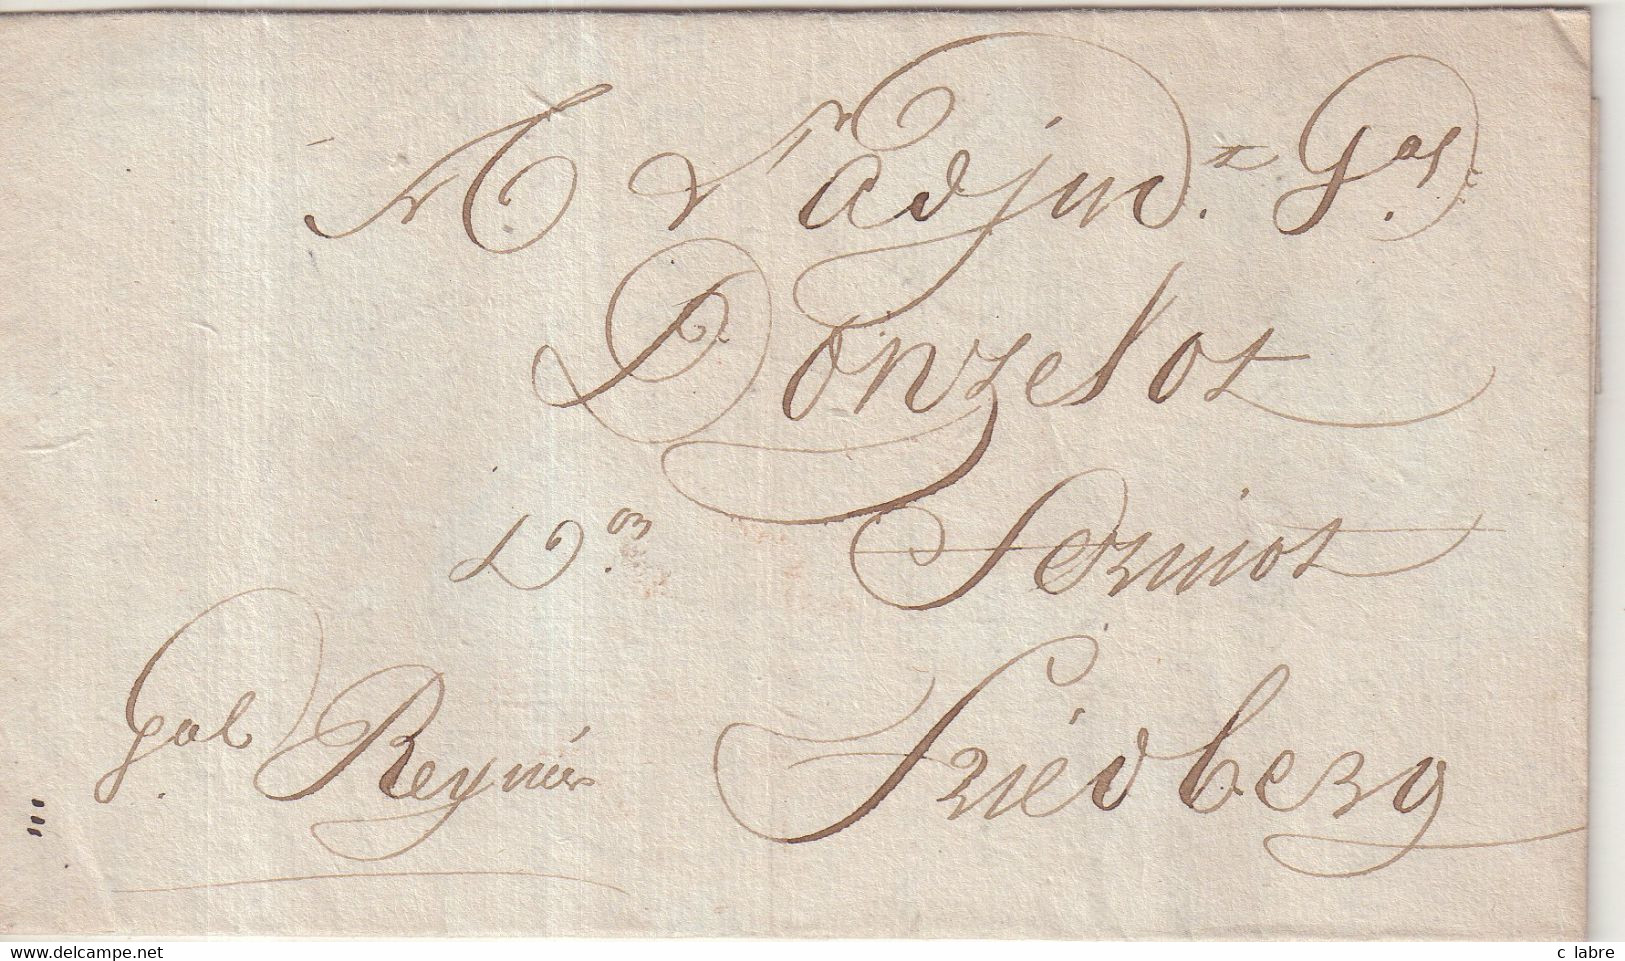 A L'adjud.t G.al
Donzelot
D.on Fermiot
G.al Reynier Friedberg
www.delcampe.net
c labre